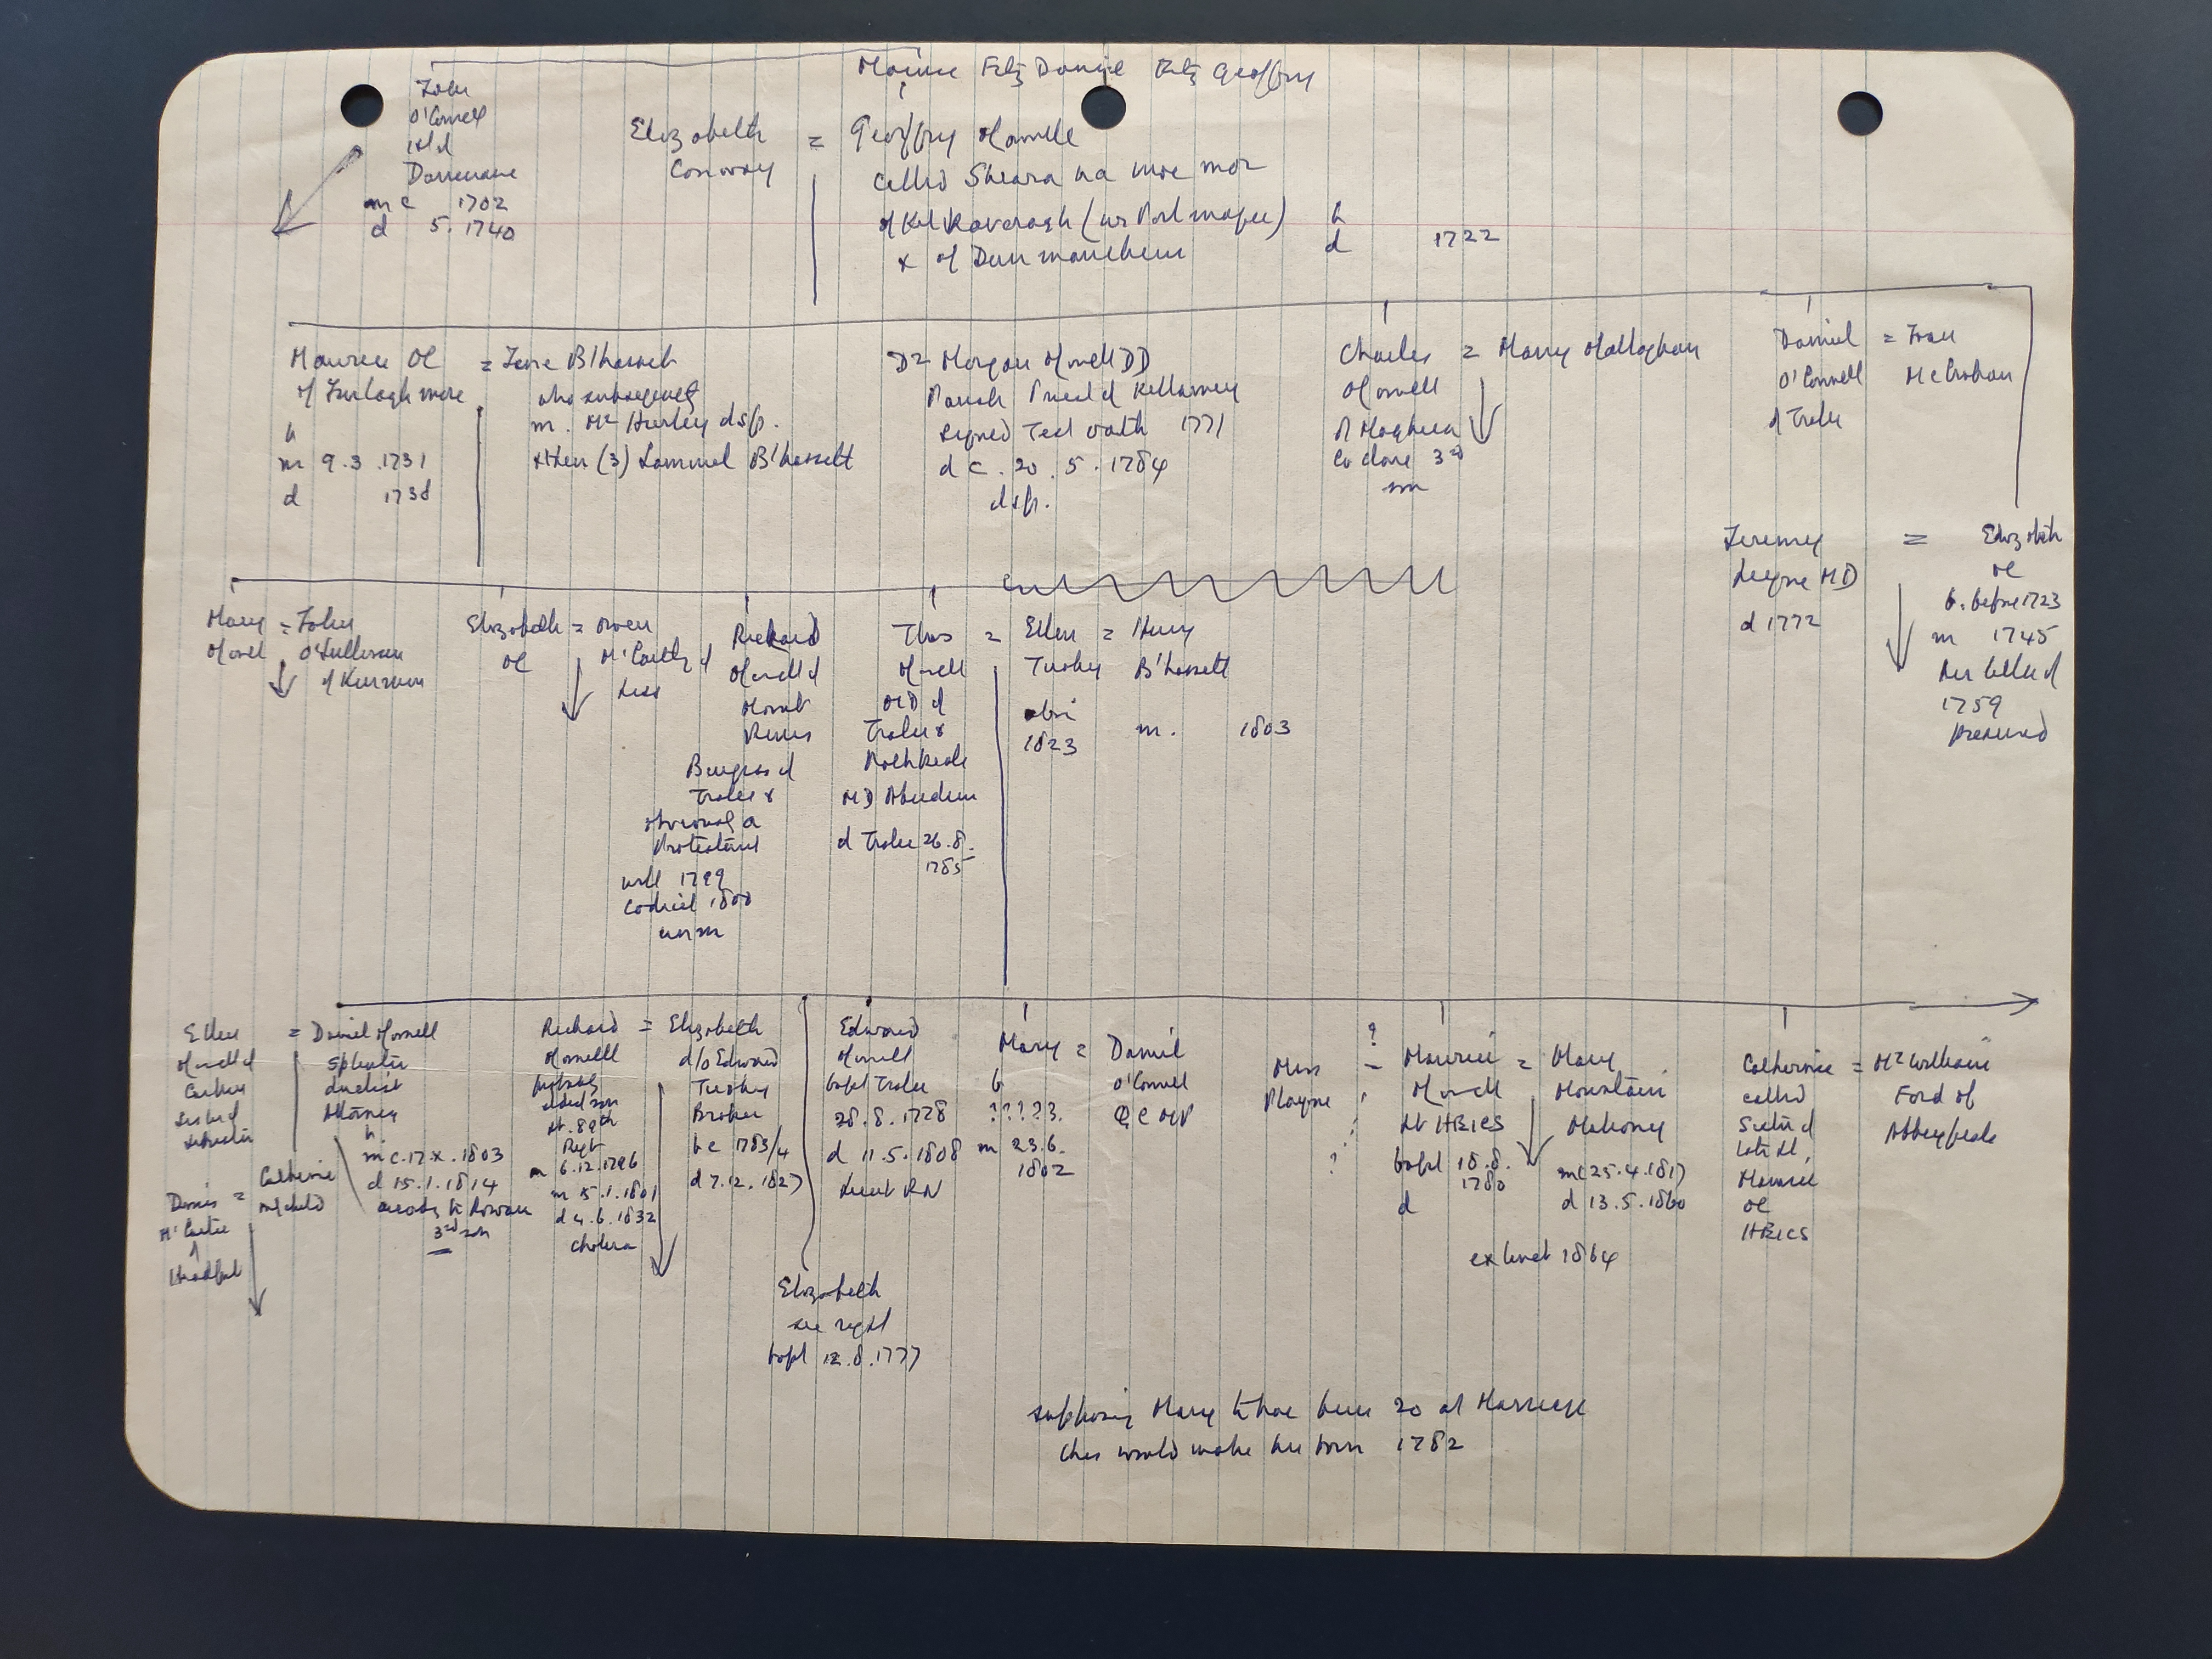 Maurice Fitz Daniel Fitz Geoffrey
John
O'Connell
of
Derrynane
m c 1702
d 5. 1740
Elizabeth
Conway
= Geoffrey O'Connell
called
of (nr Portmagee)
x of
b
d 1722
Maurice OC
of
b
m 9.3.1731
d 1738
= Jane B'hassett
who subsequently
m. Mr Hurley dsp.
x then (3) Sammuel B'hassett
Dr Morgan O'Connell DD
Parish Priest of Killarney
signed Test oath 1771
d c. 20.5.1784
dsp.
Charles = Mary O'Callaghan
O'Connell
of
Co Clare 3rd
son
Daniel = Joan
O'Connell McCrohan
of Tralee
Jeremy = Elizabeth
MD OC
d 1772 b. before 1723
m 1745
her letter of
1759
preserved
Mary = John
O'Connell O'Sullivan
of
Elizabeth = Owen
OC M'Carthy of
Liss
Rickard
O'Connell of
Mount
Rivers
Burgess of
Tralee x
a
Protestant
will 1799
Codicil 1800
unm
Thos = Ellen = Henry
O'Connell Tuohy B'hassett
MD of
Tralee x
Rathkeale
MD Aberdeen
d Tralee 26.8.
1785
1823
m. 1803
Ellen = Daniel O'Connell
O'Connell of
duelist
Attorney
b.
m c.17.x.1803
d 15.1.1814
3rd son
Denis = Catherine
M'Cartie only child
of
Headfort
Rickard = Elizabeth
O'Connell d/o Edward
Tuohy
Broker
probably
eldest son
Lt. 89th
Regt
6.12.1796
m 5.1.1801
d 4.6.1832
cholera
b c 1783/4
d 7.12.1827
Edward
O'Connell
bapt Tralee
28.8.1778
d 11.5.1808
Lieut RN
Elizabeth
see right
bapt 12.8.1777
Mary = Daniel
b O'Connell
?????. QC MP
m 23.6.
1802
Miss
Playne
?
?
Maurice = Mary
O'Connell Mountain
Lt HEICS Mahony
bapt 18.8.
1780
d
m c 25.4.1817
d 13.5.1860
ex 1864
Catherine = Mr William
called Ford of
Sister of Abbeyfeale
late Lt.
Maurice
OC
HEICS
supposing Mary to have been 20 at Marriage
this would make her born 1782